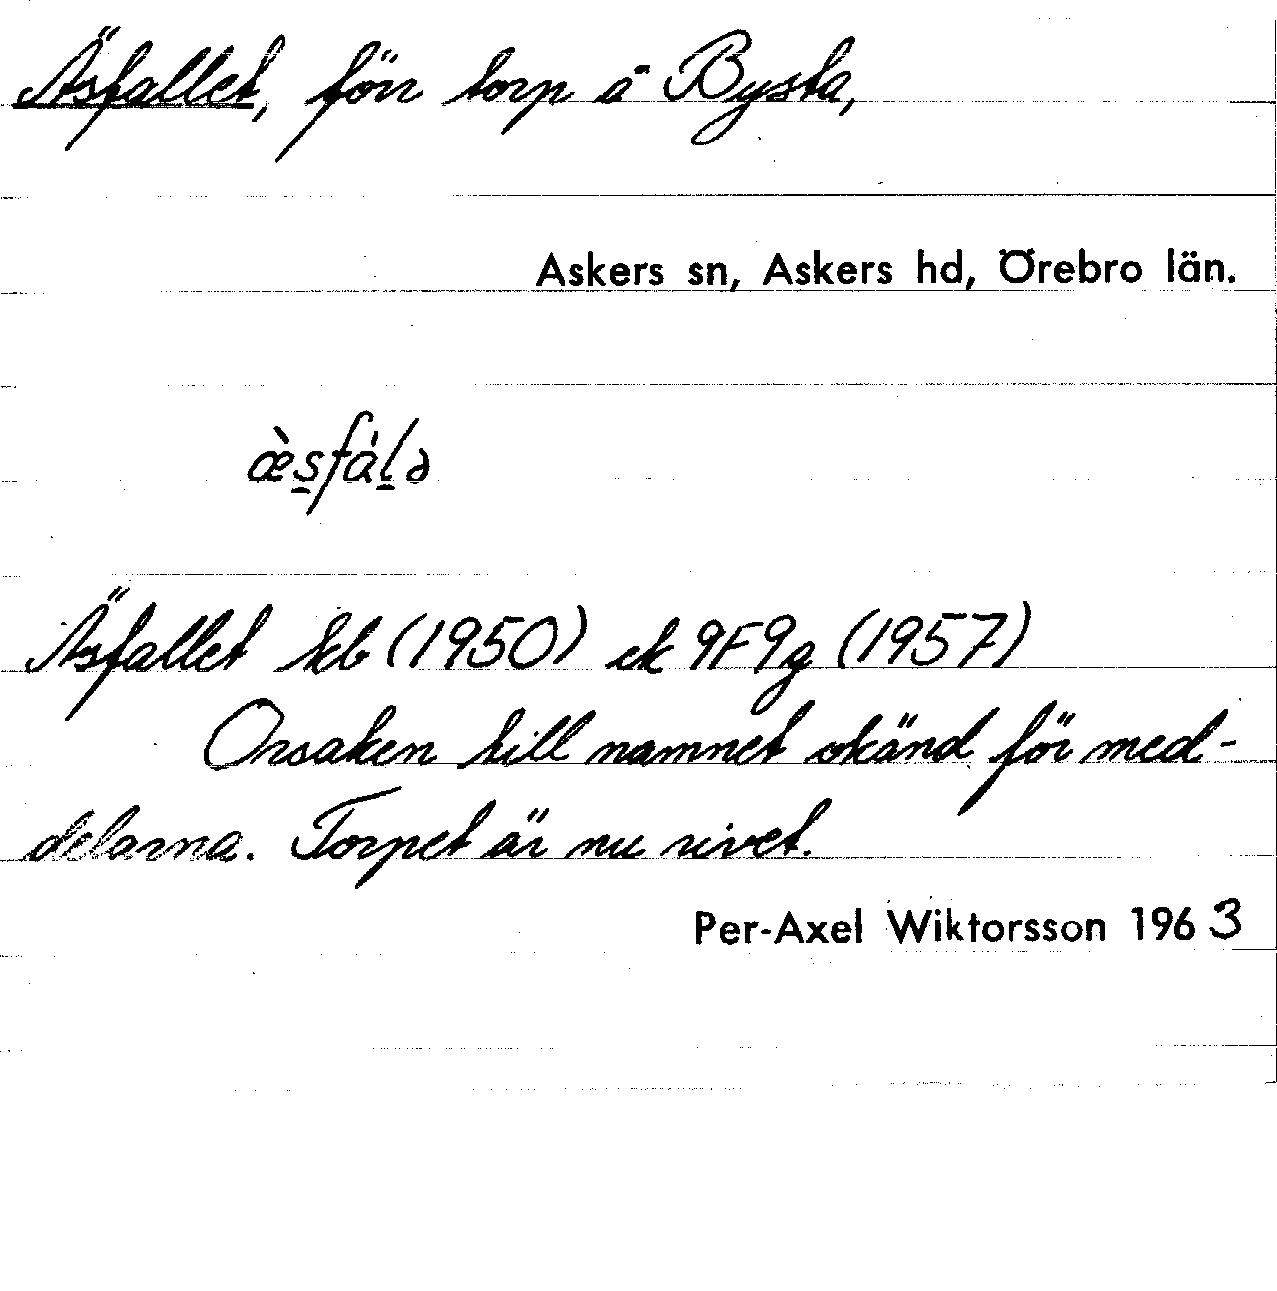 Äsfallet, förr torp å Bysta,
Askers sn, Askers hd, Örebro län.
æ̀s̲fál̲ə
Äsfallet kb (1950) ek 9F9g (1957)
Orsaken till namnet okänd för med-
delarna. Torpet är nu rivet.
Per-Axel Wiktorsson 1963